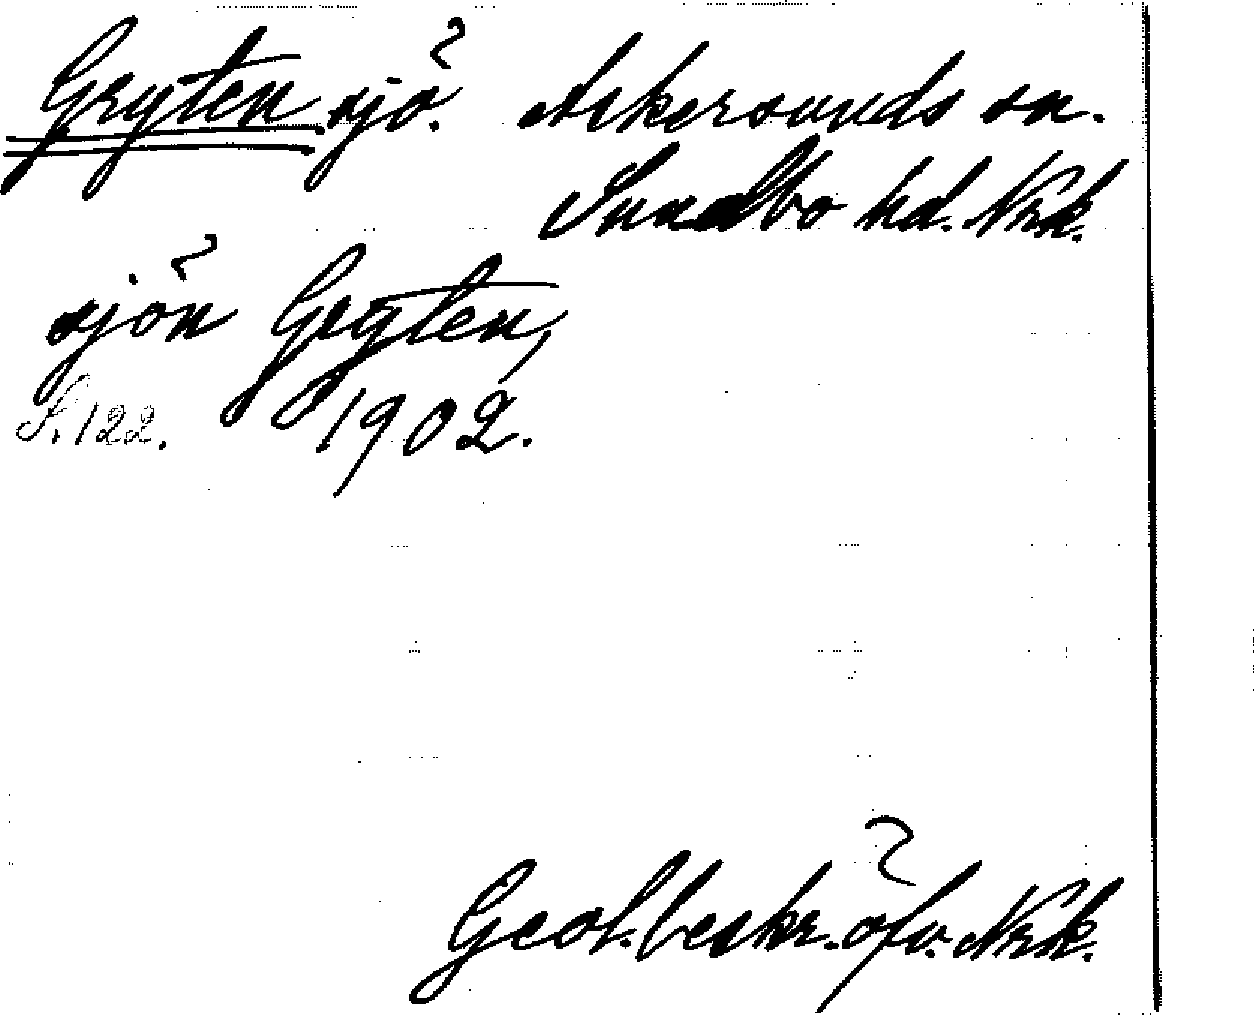 Gryten sjö. Askersunds sn.
Sundbo hd. Nrk.
sjön Gryten,
S. 122. 1902.
Geol. beskr. öfv. Nrk.